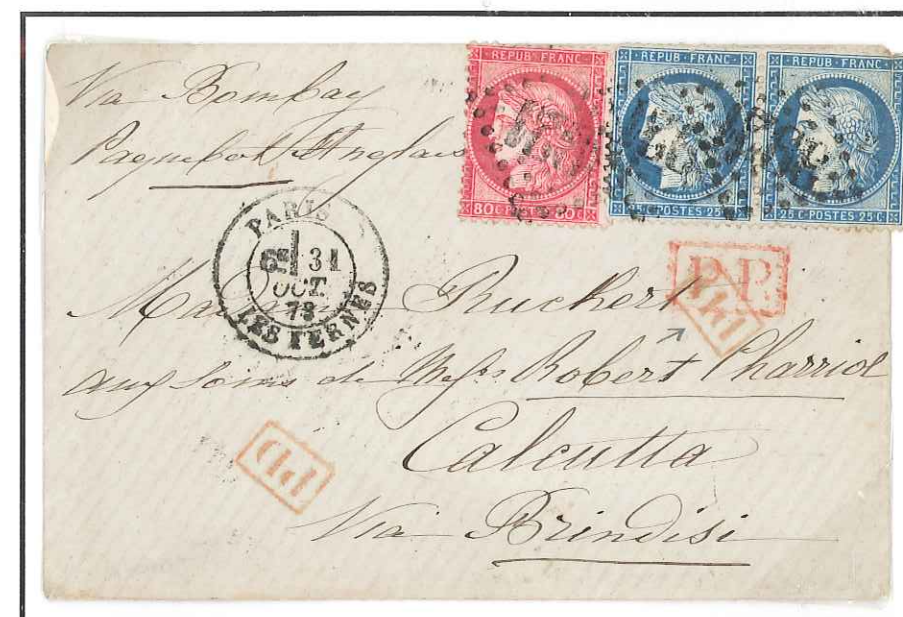 Via Bombay
Paquebot Anglais
REPUB·FRANC
80 C
REPUB·FRANC·
25 C·POSTES 25 C
·REPUB·FRANC·
25 C·POSTES·25 C
PARIS
31
OCT.
73
LES TERNES
P.P.
Madame Ruckert
aux soins de Messrs Robert Charriol
Calcutta
PD
Via Brindisi